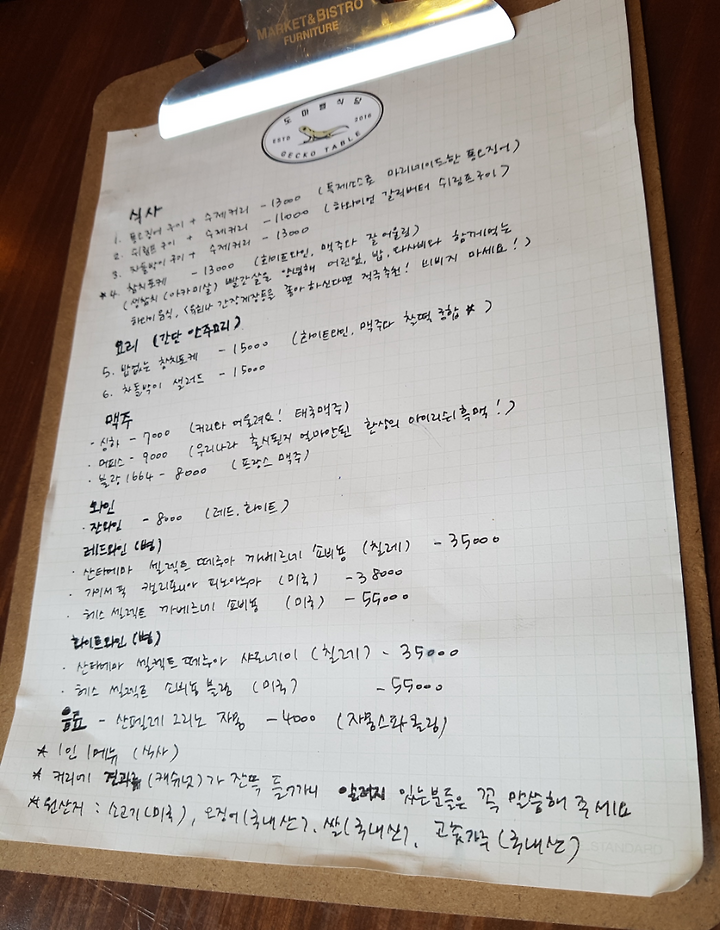 MARKET&BISTRO
FURNITURE
도마뱀식당
2016 2016
GECKO TABLE
식사
1. 통오징어 구이 + 수제커리 - 13000 (특제소스로 마리네이드한 통오징어)
2. 쉬림프구이 + 수제커리 - 11000 (하와이언 갈릭버터 쉬림프구이)
3. 차돌박이구이 + 수제커리 - 13000
*4. 참치포케 - 13000 (화이트와인, 맥주와 잘 어울림)
(생참치(아카미살) 빨간살을 양념해 어린잎, 밥, 와사비와 함께먹는
하와이음식, 육회나 간장게장등을 좋아하신다면 적극추천! 비비지 마세요!)
요리 (간단 안주요리)
5. 밥없는 참치포케 - 15000 (화이트와인, 맥주와 찰떡 궁합*)
6. 차돌박이 샐러드 - 15000
맥주
· 싱하 - 7000 (커리와 어울려요! 태국맥주)
· 머피스 - 9000 (우리나라 출시된지 얼마안된 환상의 아이리쉬 흑맥!)
· 블랑1664 - 8000 (프랑스 맥주)
와인
· 잔와인 - 8000 (레드, 화이트)
레드와인 (병)
· 산타에마 셀렉트 떼루아 까베르네 쇼비뇽 (칠레) - 35000
· 가이서 픽 캘리포니아 피노누아 (미국) - 38000
· 헤스 셀렉트 까베르네 쇼비뇽 (미국) - 55000
화이트와인 (병)
· 산타에마 셀렉트 떼루아 샤르네이 (칠레) - 35000
· 헤스 셀렉트 쇼비뇽 블랑 (미국) - 55000
음료 - 산펠레그리노 자몽 - 4000 (자몽스파클링)
* 1인 1메뉴 (식사)
* 커리에 견과류 (캐슈넛)가 잔뜩 들어가니 알러지 있는분들은 꼭 말씀해 주세요
* 원산지 : 소고기(미국), 오징어(국내산), 쌀(국내산), 고춧가루(국내산)
STANDARD